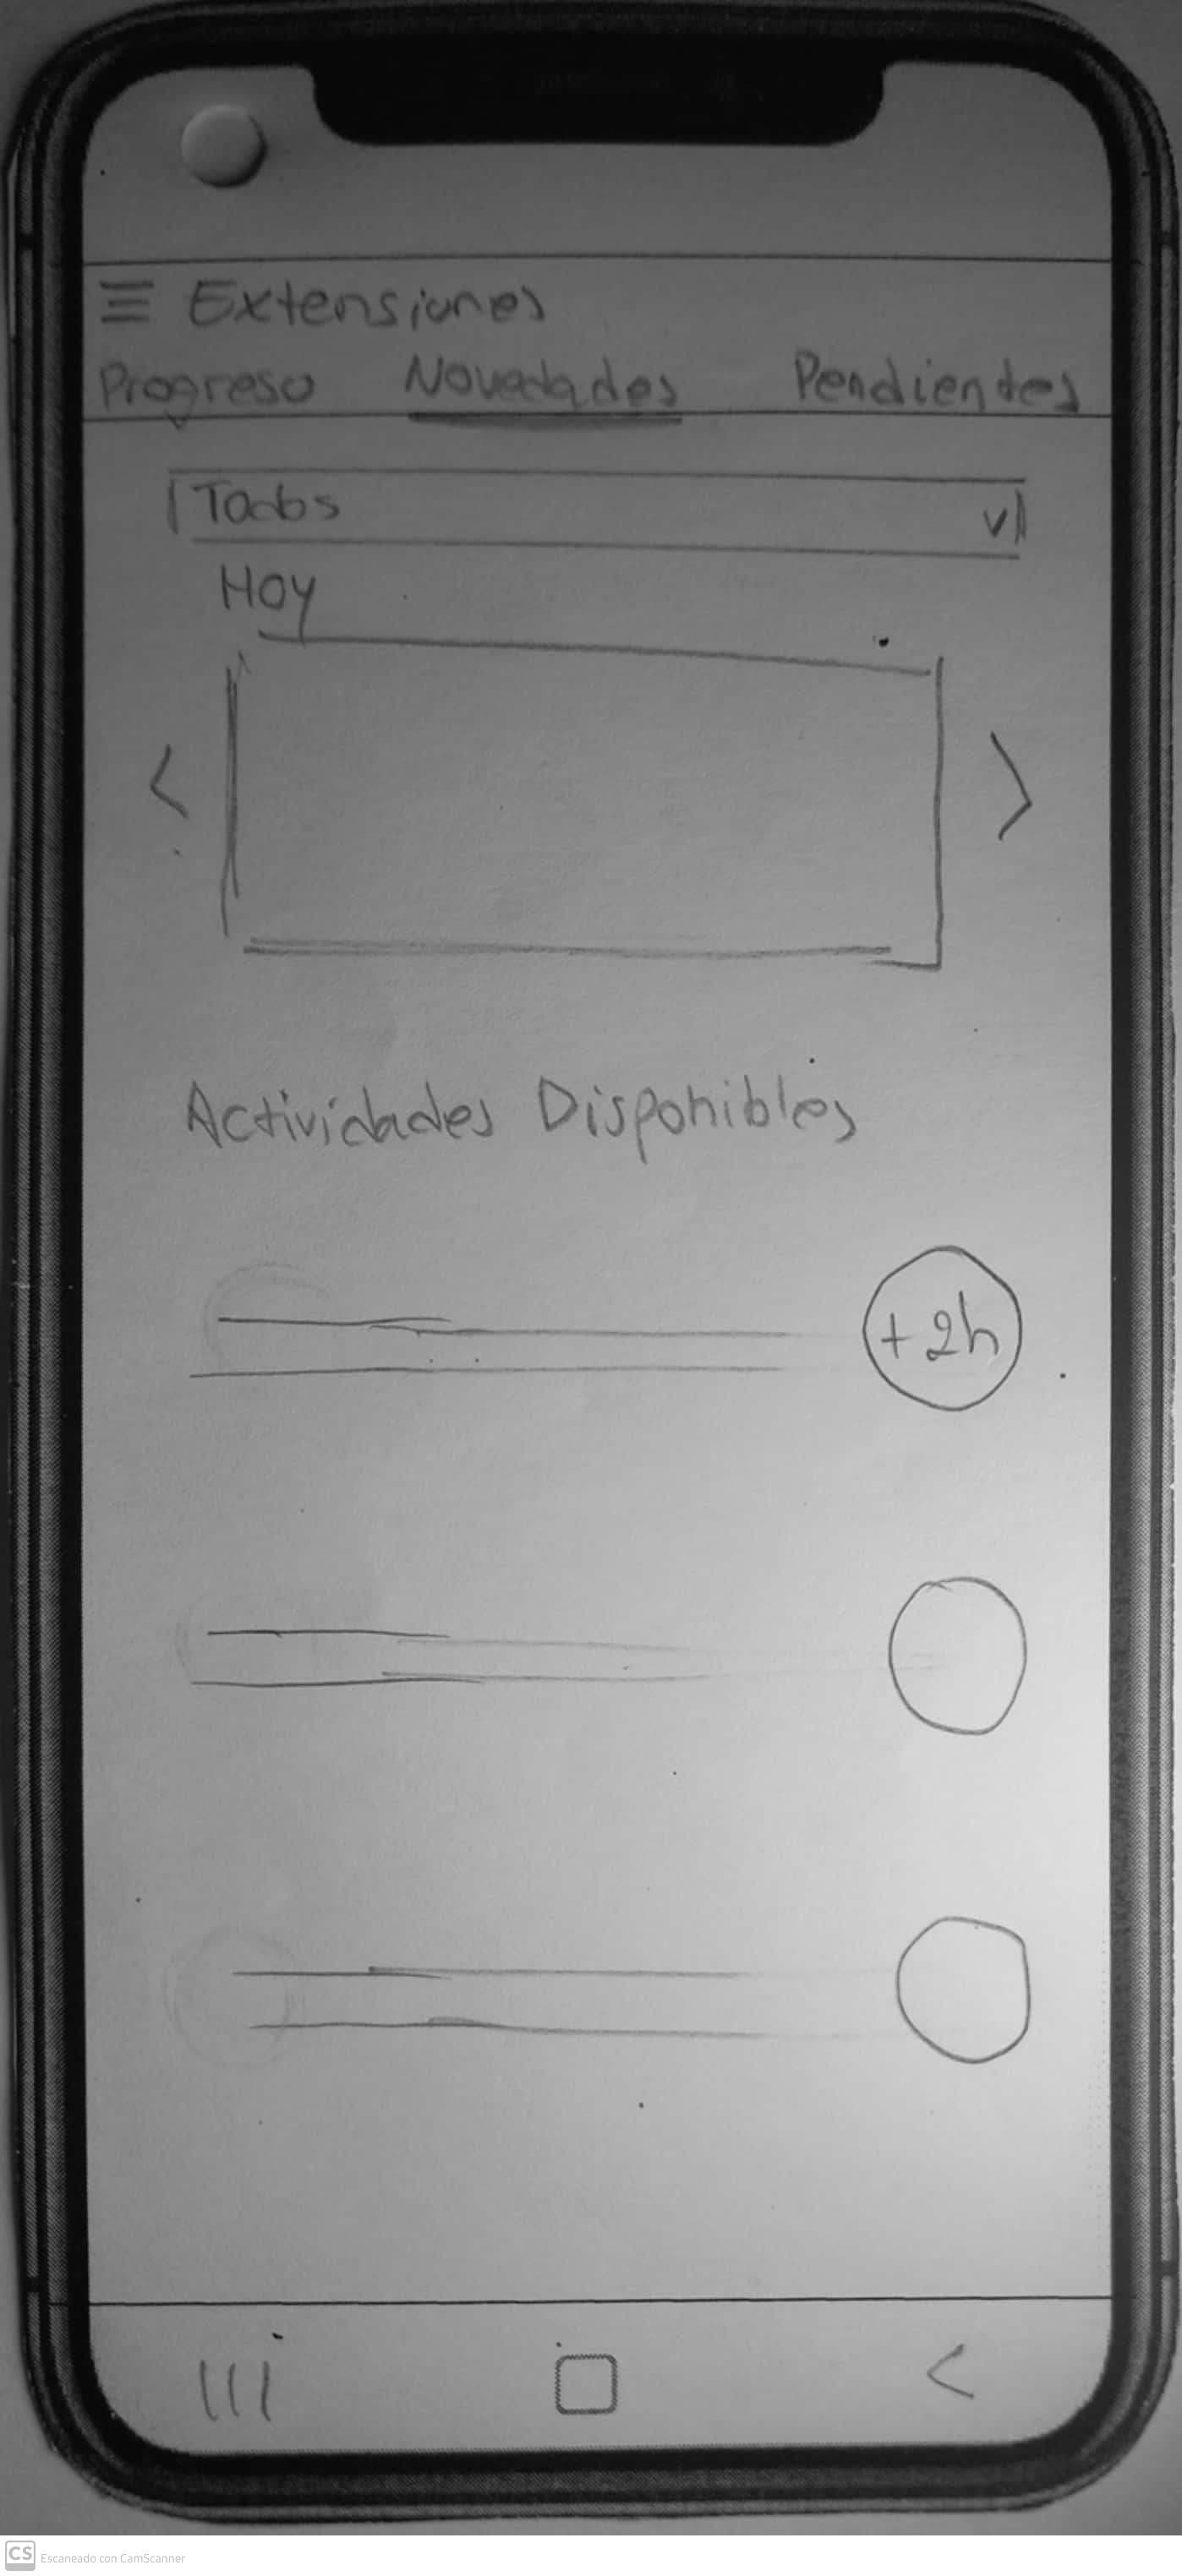 Extensiones
Progreso Novedades Pendientes
Todos
Hoy
Actividades Disponibles
+2h
CS Escaneado con CamScanner